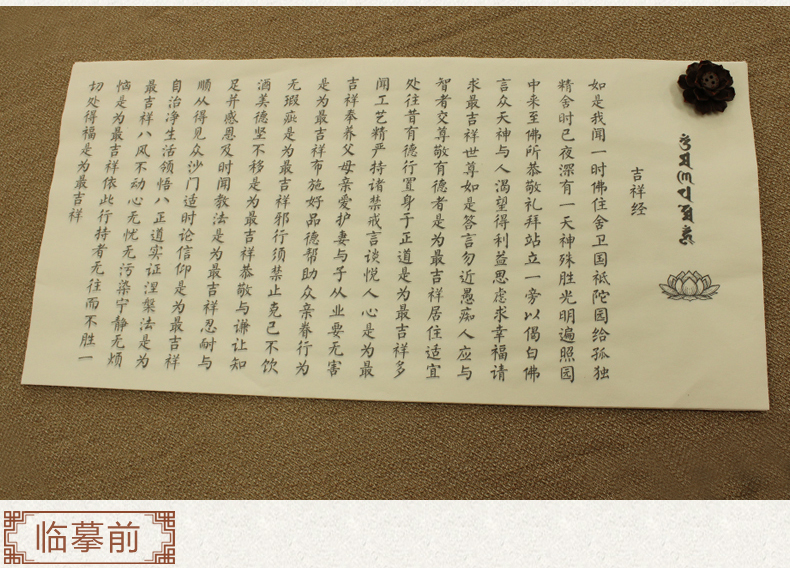 吉祥经
如是我闻一时佛住舍卫国祗陀园给孤独
精舍时已夜深有一天神殊胜光明遍照园
中来至佛所恭敬礼拜站立一旁以偈白佛
言众天神与人渴望得利益思虑求幸福请
求最吉祥世尊如是答言勿近愚痴人应与
智者交尊敬有德者是为最吉祥居住适宜
处往昔有德行置身于正道是为最吉祥多
闻工艺精严持诸禁戒言谈悦人心是为最
吉祥奉养父母亲爱护妻与子从业要无害
是为最吉祥布施好品德帮助众亲眷行为
无瑕疵是为最吉祥邪行须禁止克己不饮
酒美德坚不移是为最吉祥恭敬与谦让知
足并感恩及时闻教法是为最吉祥忍耐与
顺从得见众沙门适时论信仰是为最吉祥
自治净生活领悟八正道实证涅槃法是为
最吉祥八风不动心无忧无污染宁静无烦
恼是为最吉祥依此行持者无往而不胜一
切处得福是为最吉祥
临摹前